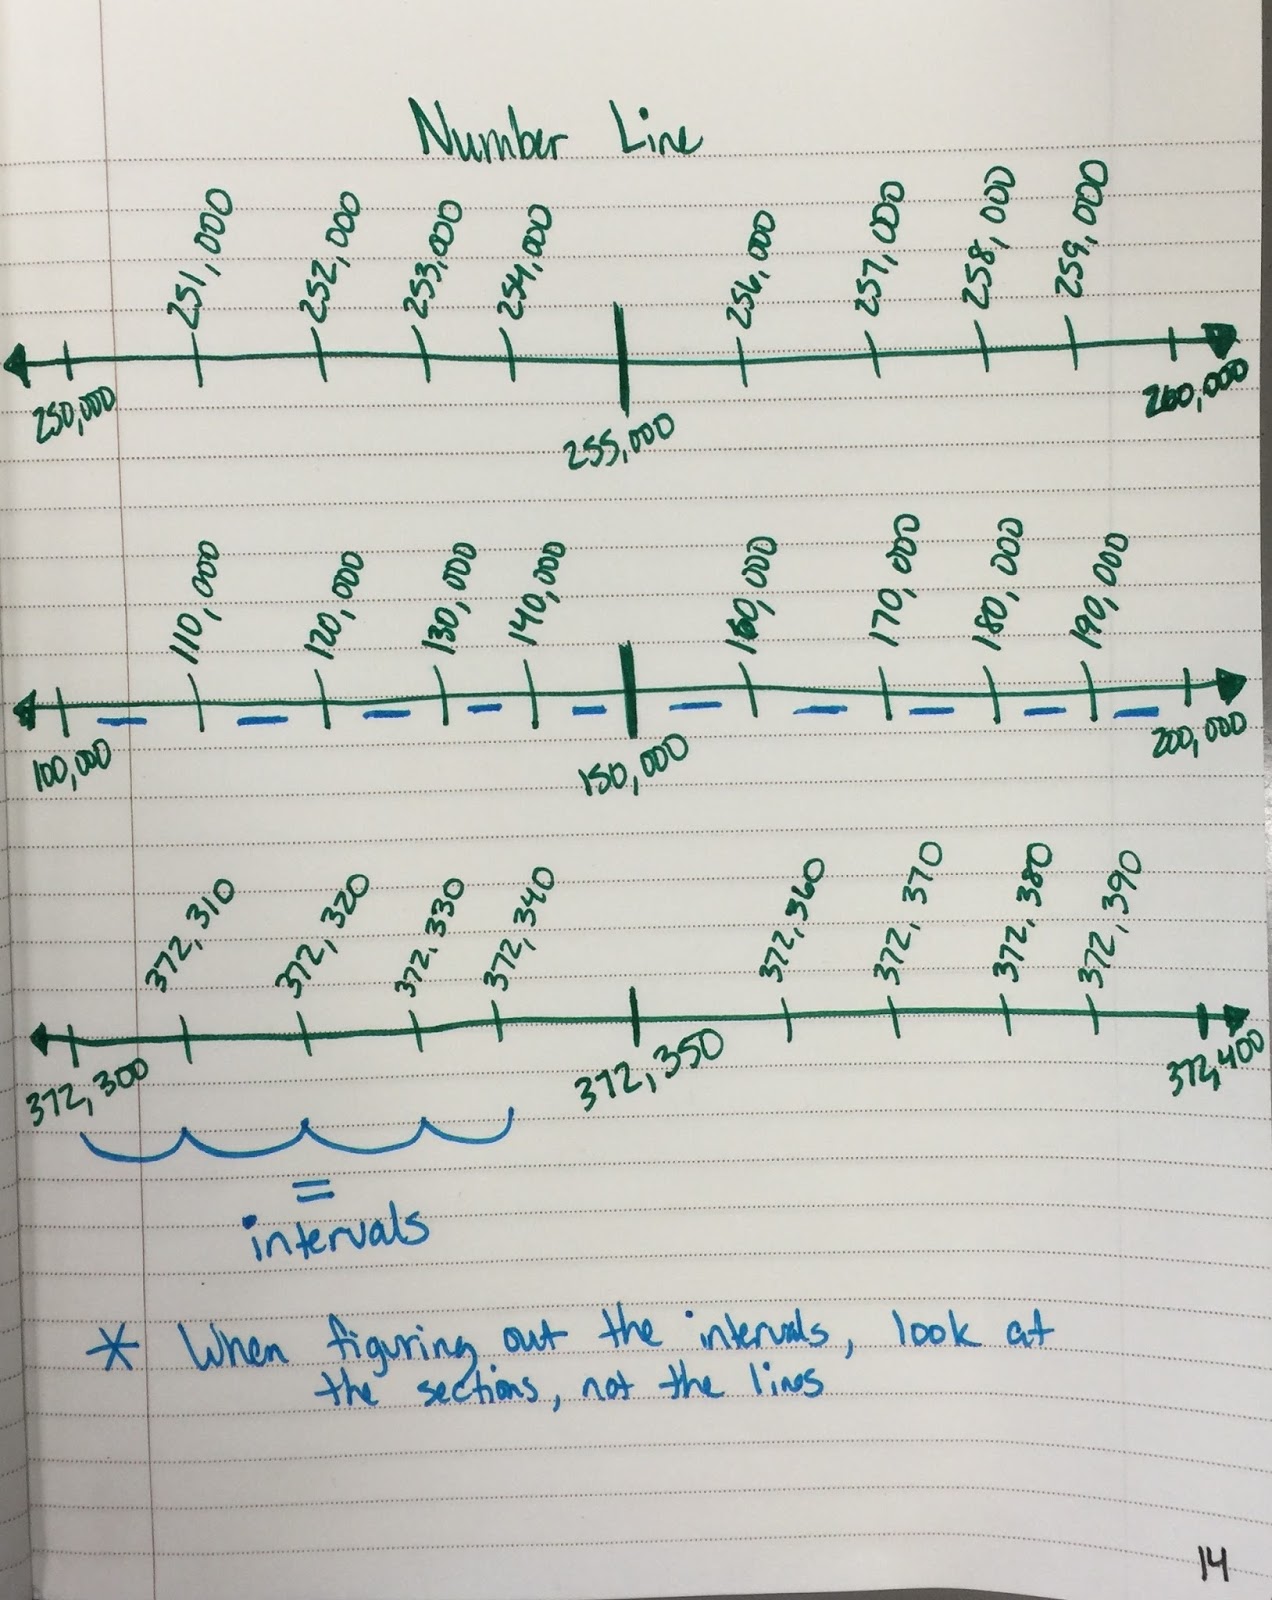 Number Line
251,000 252,000 253,000 254,000 256,000 257,000 258,000 259,000
250,000 255,000 260,000
110,000 120,000 130,000 140,000 160,000 170,000 180,000 190,000
100,000 150,000 200,000
372,310 372,320 372,330 372,340 372,360 372,370 372,380 372,390
372,300 372,350 372,400
=
intervals
* When figuring out the intervals, look at
the sections, not the lines
14